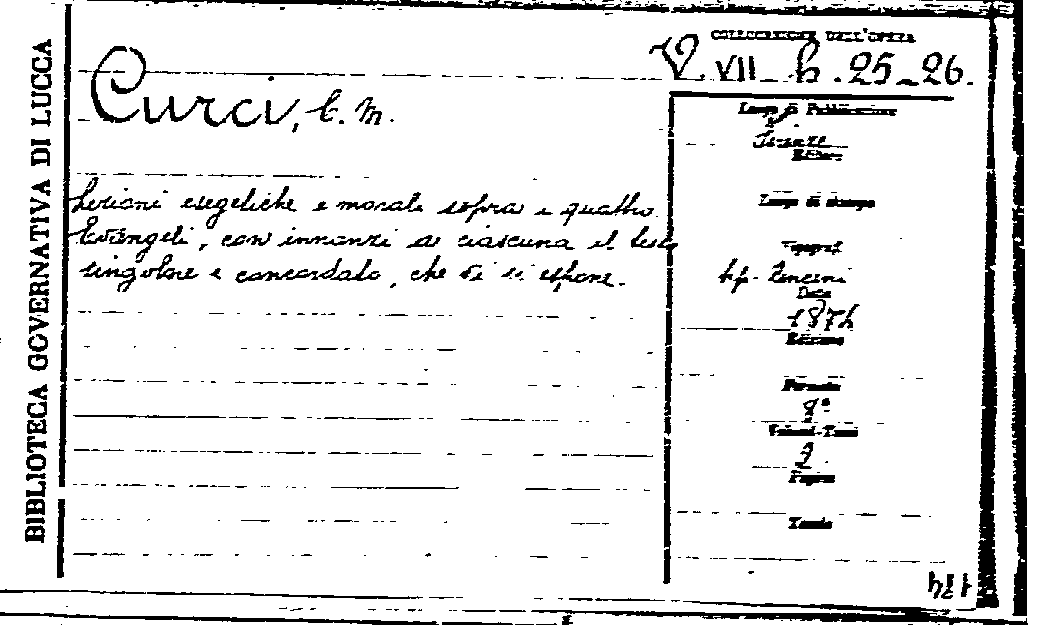 BIBLIOTECA GOVERNATIVA DI LUCCA
COLLOCAZIONE DELL'OPERA
V. VII_ h. 25_26.
Curci, C. M.
Lezioni esegetiche e morali sopra i quattro
Evangeli, con innanzi a ciascuna il testo
singolare e concordato, che vi si espone.
Luogo di Pubblicazione
Firenze
Editore
Luogo di stampa
Tipografi
tip. Pencini
Data
1874
Edizione
Formato
8°
Volumi-Tomi
2
Pagine
Tavole